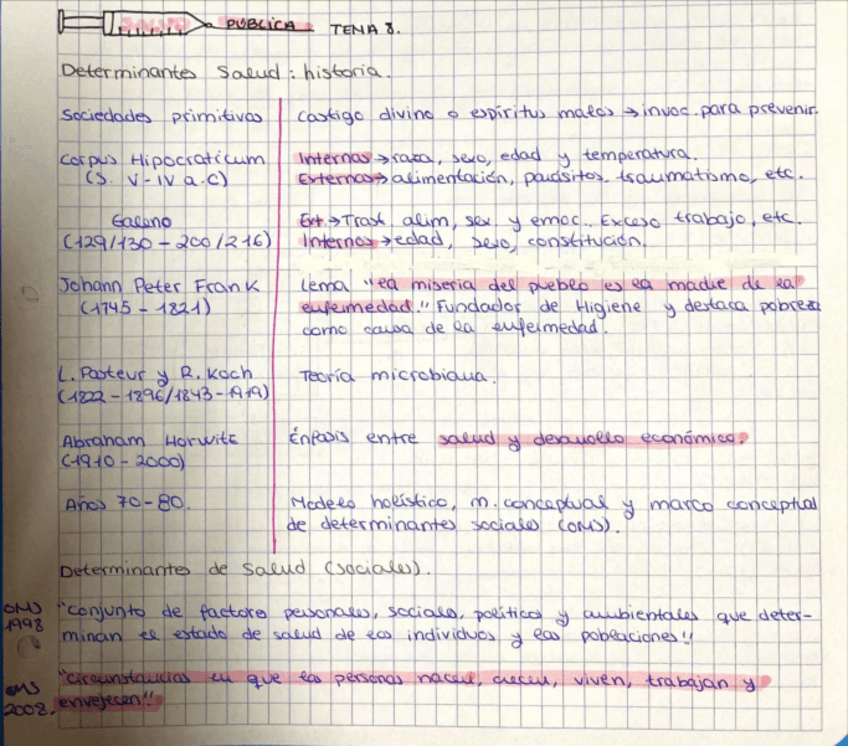 SALUD PÚBLICA TEMA 8.
Determinantes Salud: historia.
Sociedades primitivas castigo divino o espíritus malos → invoc. para prevenir.
Corpus Hipocraticum Internas → raza, sexo, edad y temperatura.
(S. V-IV a.C) Externas → alimentación, parásitos, traumatismo, etc.
Galeno Ext. → Trast. alim, sex y emoc. Exceso trabajo, etc.
(129/130 - 200/216) Internos → edad, sexo, constitución.
Johann Peter Frank Lema "la miseria del pueblo es la madre de la
(1745 - 1821) enfermedad." Fundador de Higiene y destaca pobreza
como causa de la enfermedad.
L. Pasteur y R. Koch Teoría microbiana.
(1822 - 1896/1843 - 1919)
Abraham Horwitz Énfasis entre salud y desarrollo económico.
(1910 - 2000)
Años 70-80. Modelo holístico, m. conceptual y marco conceptual
de determinantes sociales (OMS).
Determinantes de Salud (sociales).
OMS "conjunto de factores personales, sociales, políticos y ambientales que deter-
1998 minan el estado de salud de los individuos y las poblaciones"
OMS "circunstancias en que las personas nacen, crecen, viven, trabajan y
2008. envejecen"